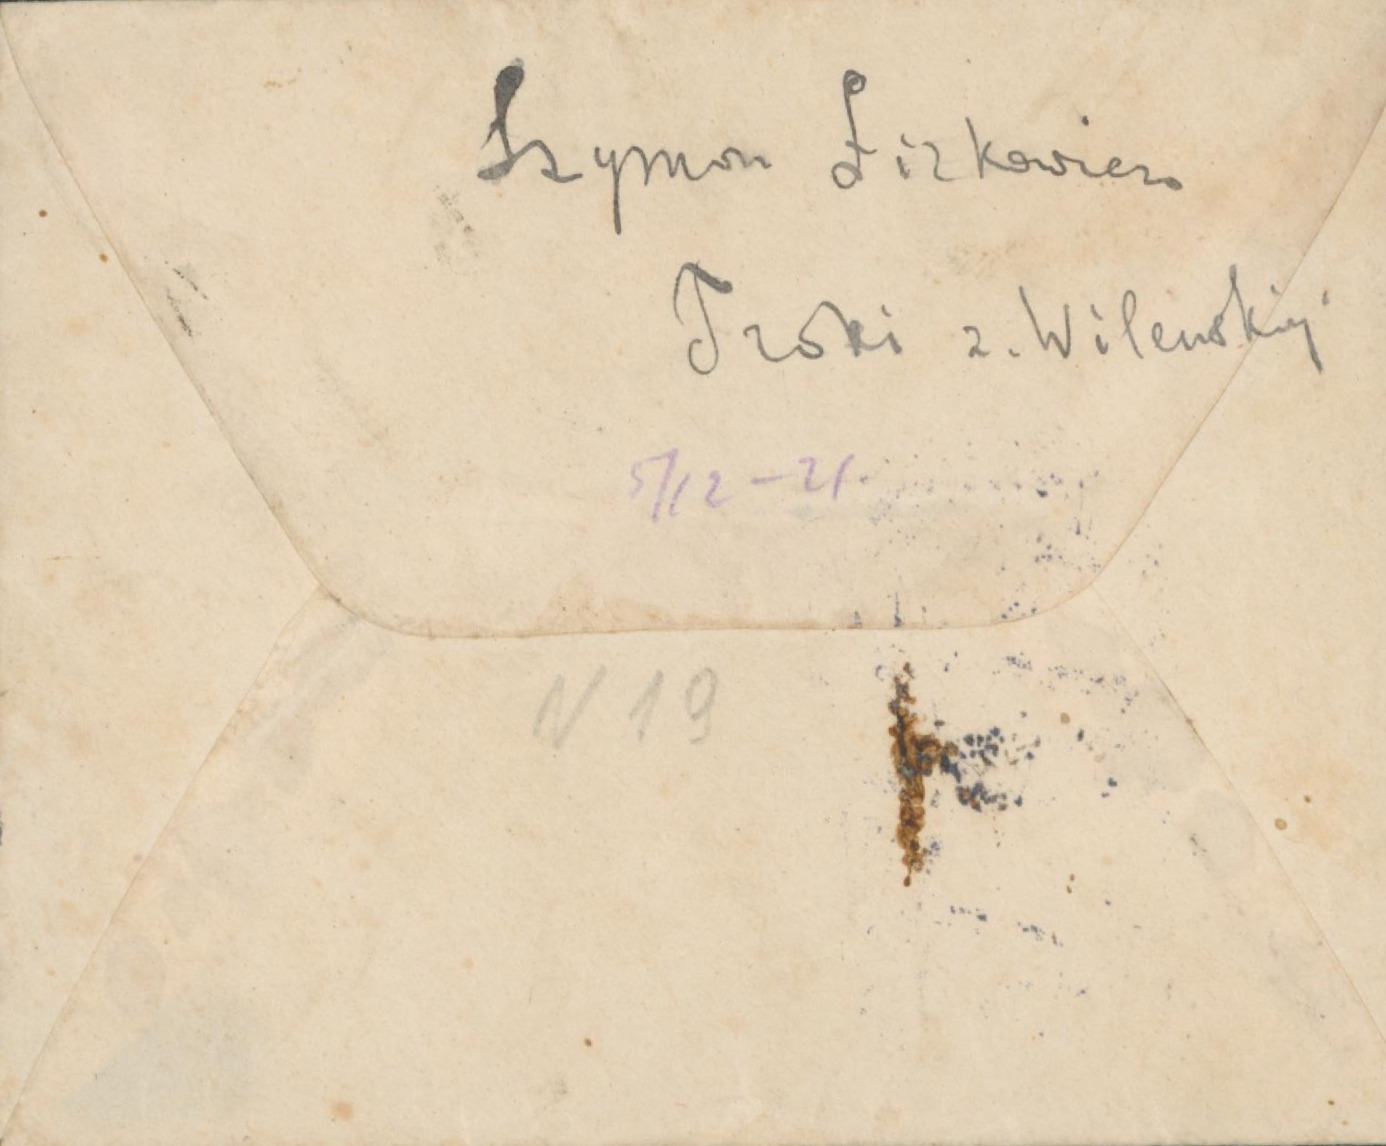 Szymon Firkowicz
Troki z. Wilenskiej
5/12 - 21.
N 19